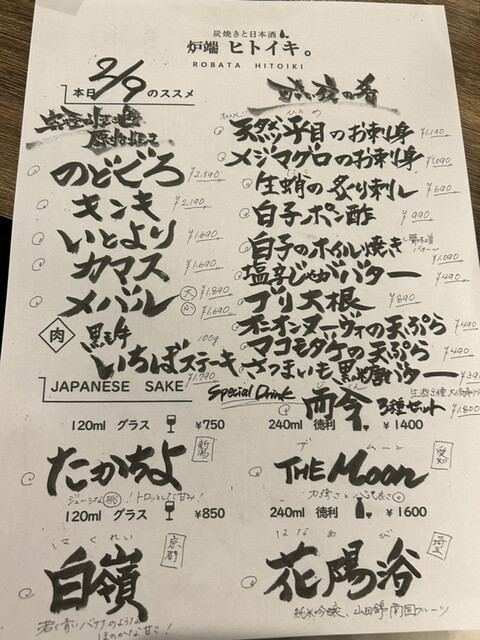 炭焼きと日本酒
炉端 ヒトイキ。
ROBATA HITOIKI
本日 2/9 のススメ
のどぐろ ¥2,590
キンキ ¥2,190
いとより ¥1,690
カマス ¥1,690
メバル 大 ¥1,890
小 ¥1,690
肉 黒毛牛 100g
いちばステーキ ¥1,790
天然平目のお刺身 ¥1,190
メジマグロのお刺身 ¥1,090
生蛸の炙り刺し ¥690
白子ポン酢 ¥990
白子のホイル焼き ¥1,090
塩辛じゃがバター ¥490
ブリ大根 ¥890
オニオンヌーヴォの天ぷら ¥490
マコモダケの天ぷら ¥490
さつまいも黒糖バター
Special Drink
而今 3種セット ¥1,800
JAPANESE SAKE
120ml グラス ¥750
240ml 徳利 ¥1400
たかちよ 新潟
ジューシな桃!トロッとした甘み!
ザ ムーン
THE MOON 愛知
120ml グラス ¥850
240ml 徳利 ¥1600
はくれい
白嶺 京都
ほのかな甘さ!
はなあび
花陽浴 埼玉
純米吟醸、山田錦 南国フルーツ